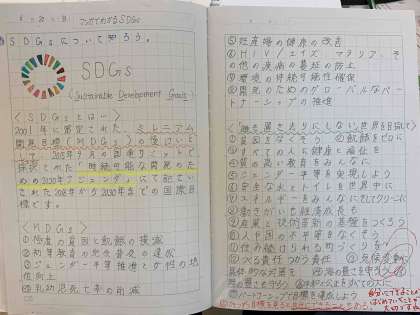 マンガでわかるSDGs
SDGsについて知ろう。
SDGs
(Sustainable Development Goals)
<SDGsとは>
2001年に策定されたミレニアム
開発目標(MDGs)の後にい
として、2015年9月の国連サミット
採択された「持続可能な開発のた
めの2030アジェンダ」にて記さい
された2016年から2030年までの国際目
標です。
<MDGs>
①極度の貧困と飢餓の撲滅
②初等教育の完全普及の達成
③ジェンダー平等推進と女性の地
位向上
④乳幼児死亡率の削減
⑤妊産婦の健康の改善
⑥HIV/エイズ、マラリア、そ
の他の疾病の蔓延の防止
⑦環境の持続可能性確保
⑧開発のためのグローバルなパー
トナーシップの推進
<誰も置きさりにしない世界を目指て>
①貧困をなくそう ②飢餓をゼロに
③すべての人に健康と福祉を
④質の高い教育をみんなに
⑤ジェンダー平等を実現しよう
⑥安全な水とトイレを世界中に
⑦エネルギーをみんなにそしてクリーンに
⑧働きがいも経済成長も
⑨産業と技術革新の基盤をつくろう
⑩人や国の不平等をなくそう
⑪住み続けられるまちづくりを
⑫つくる責任つかう責任 ⑬気候変動に
具体的な対策を ⑭海の豊かさを守ろう ⑮陸
の豊かさも守ろう ⑯平和と公正をすべての人に
⑰パートナーシップで目標を達成しよう
自分にできることから
はじめていくことも
大切ですね